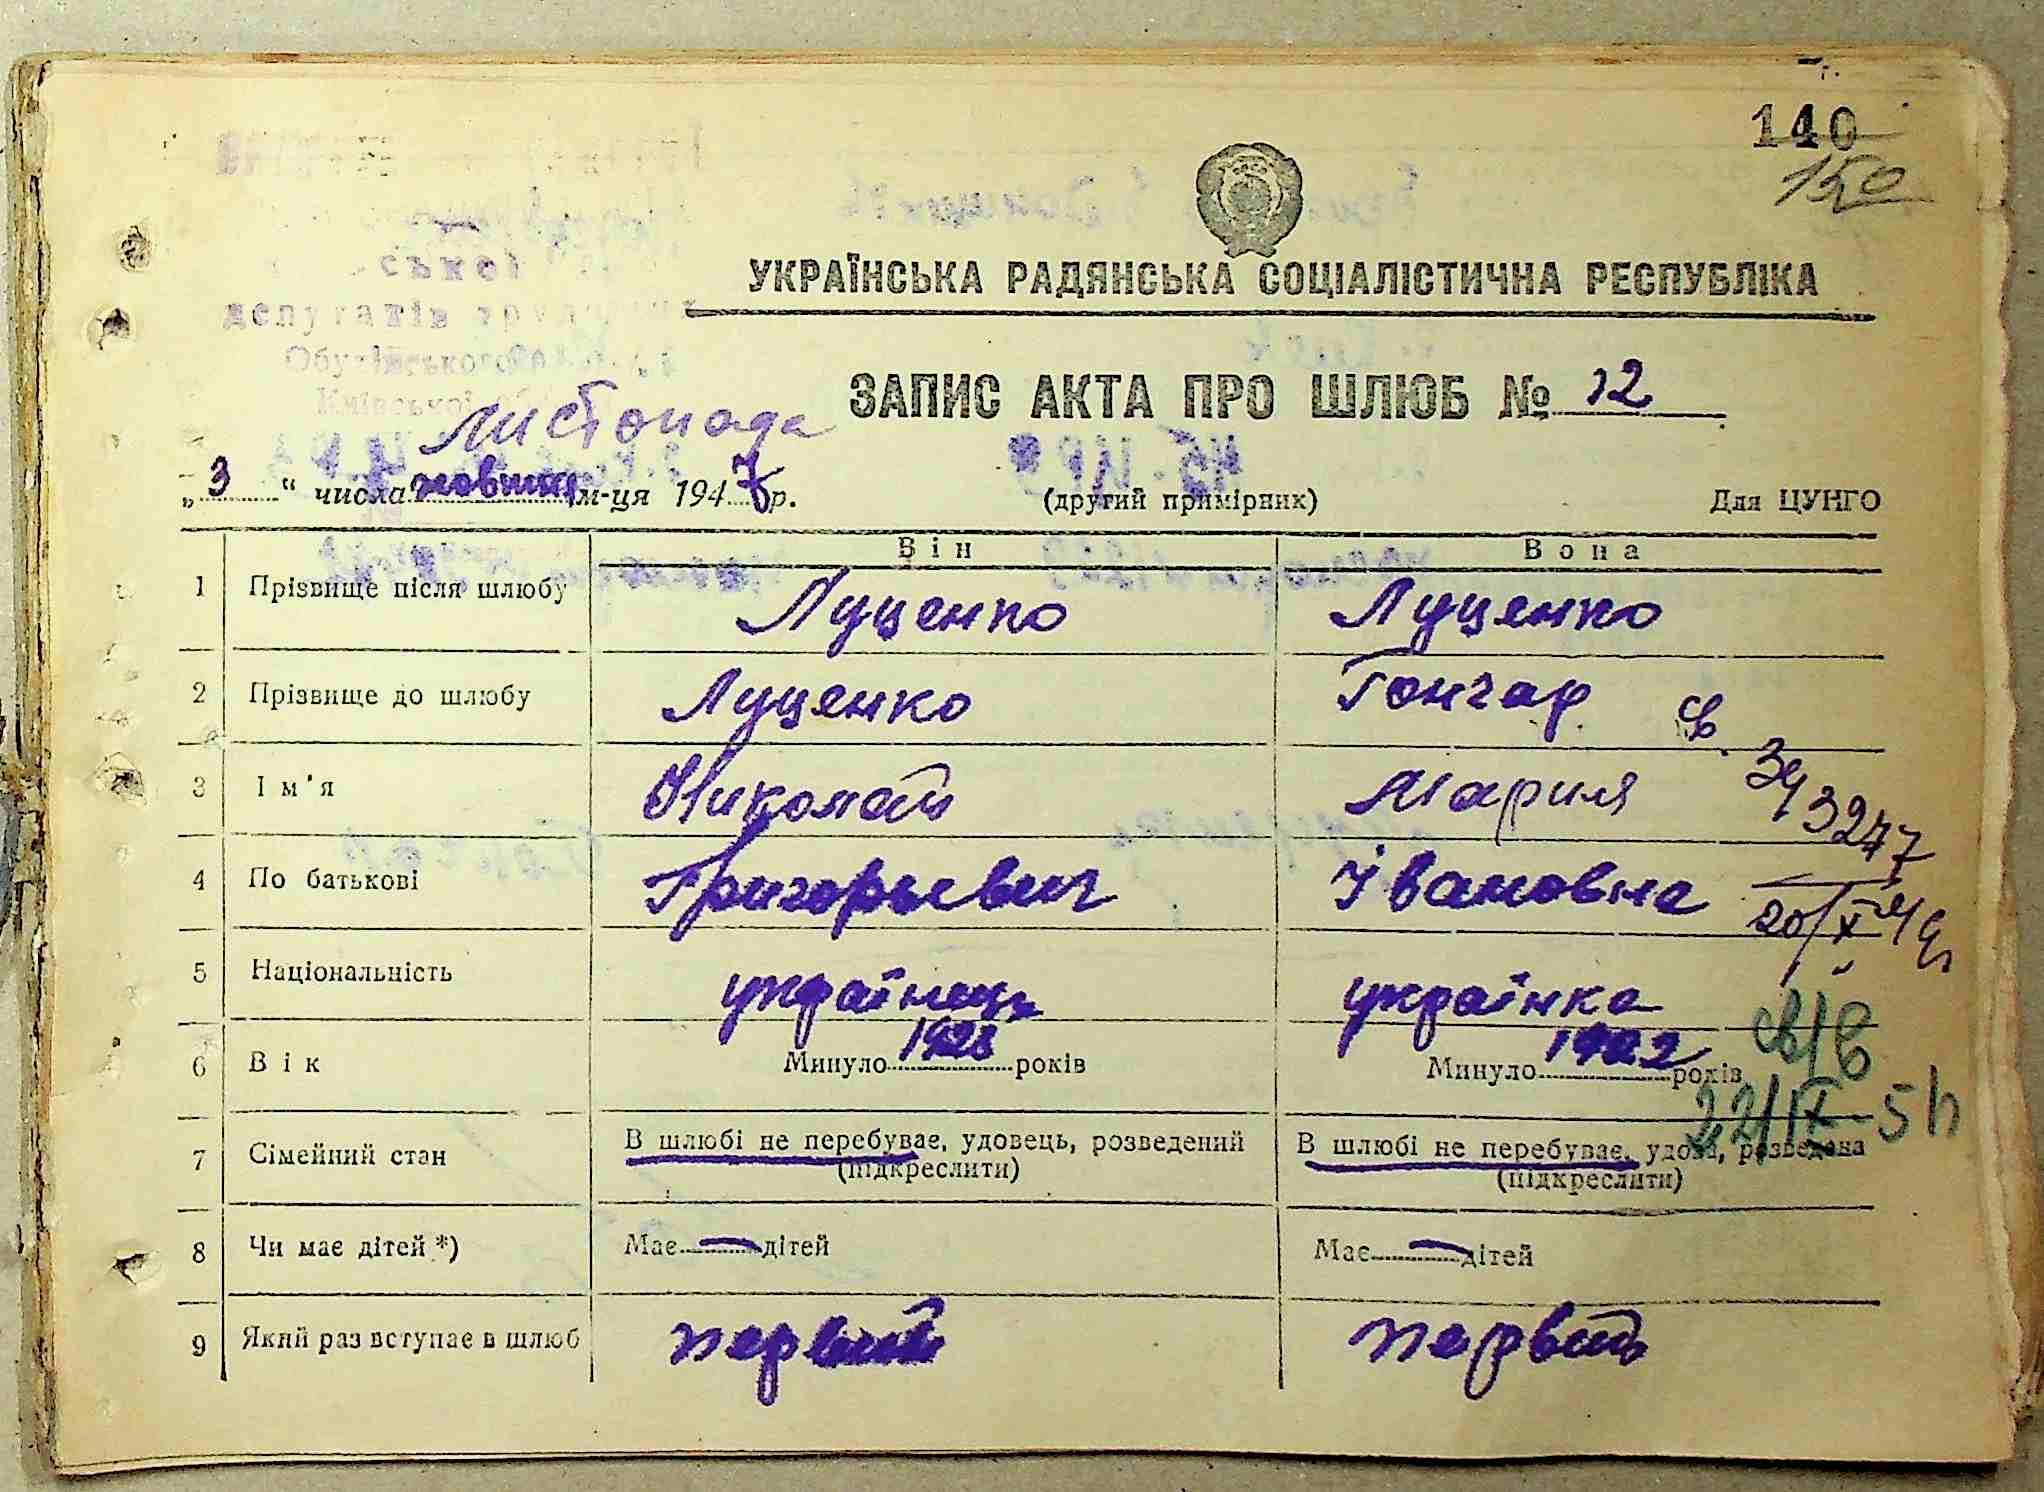 140
150
УКРАЇНСЬКА РАДЯНСЬКА СОЦІАЛІСТИЧНА РЕСПУБЛІКА
ЗАПИС АКТА ПРО ШЛЮБ № 12
Листопада
„ 3 “ числа жовтня м-ця 1947 р. (другий примірник) Для ЦУНГО
Він Вона
1 Прізвище після шлюбу Луценко Луценко
2 Прізвище до шлюбу Луценко Гончар
3 Ім'я Николай Мария
4 По батькові Григорьевич Івановна
5 Національність українець українка
6 Вік Минуло 1923 років Минуло 1922 років
7 Сімейний стан В шлюбі не перебуває, удовець, розведений В шлюбі не перебуває, удова, розведена
(підкреслити) (підкреслити)
8 Чи має дітей *) Має — дітей Має — дітей
9 Який раз вступає в шлюб первий первий
св.
343247
22/IX-5